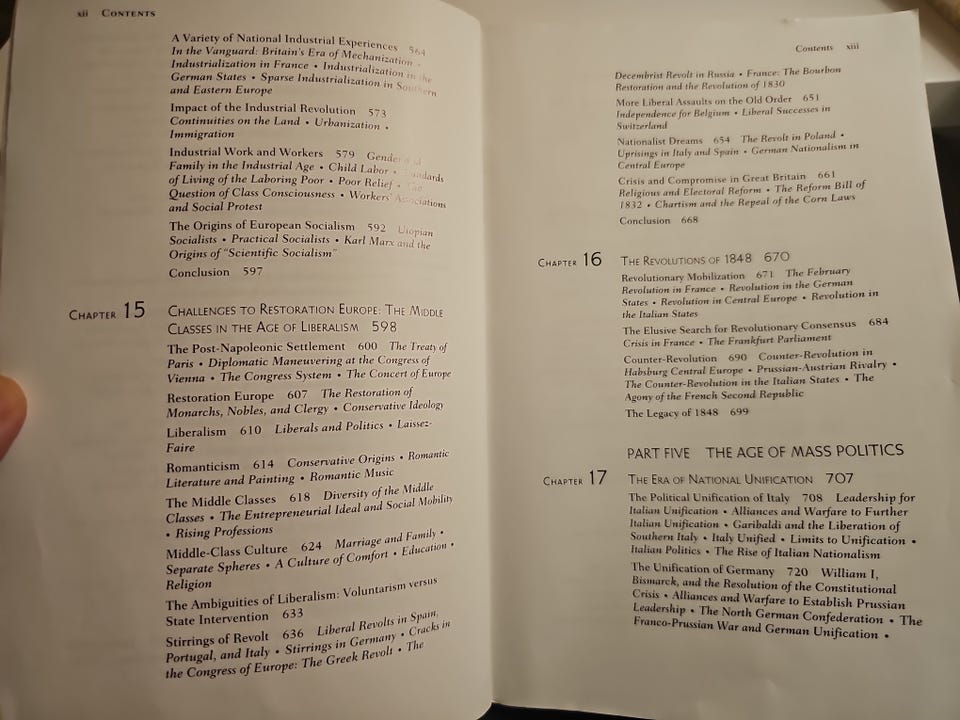 xii CONTENTS
A Variety of National Industrial Experiences 564
In the Vanguard: Britain's Era of Mechanization •
Industrialization in France • Industrialization in the
German States • Sparse Industrialization in Southern
and Eastern Europe
Impact of the Industrial Revolution 573
Continuities on the Land • Urbanization •
Immigration
Industrial Work and Workers 579 Gender and
Family in the Industrial Age • Child Labor • Standards
of Living of the Laboring Poor • Poor Relief • The
Question of Class Consciousness • Workers' Associations
and Social Protest
The Origins of European Socialism 592 Utopian
Socialists • Practical Socialists • Karl Marx and the
Origins of "Scientific Socialism"
Conclusion 597
CHAPTER 15 CHALLENGES TO RESTORATION EUROPE: THE MIDDLE
CLASSES IN THE AGE OF LIBERALISM 598
The Post-Napoleonic Settlement 600 The Treaty of
Paris • Diplomatic Maneuvering at the Congress of
Vienna • The Congress System • The Concert of Europe
Restoration Europe 607 The Restoration of
Monarchs, Nobles, and Clergy • Conservative Ideology
Liberalism 610 Liberals and Politics • Laissez-
Faire
Romanticism 614 Conservative Origins • Romantic
Literature and Painting • Romantic Music
The Middle Classes 618 Diversity of the Middle
Classes • The Entrepreneurial Ideal and Social Mobility
• Rising Professions
Middle-Class Culture 624 Marriage and Family •
Separate Spheres • A Culture of Comfort • Education •
Religion
The Ambiguities of Liberalism: Voluntarism versus
State Intervention 633
Stirrings of Revolt 636 Liberal Revolts in Spain,
Portugal, and Italy • Stirrings in Germany • Cracks in
the Congress of Europe: The Greek Revolt • The
Contents xiii
Decembrist Revolt in Russia • France: The Bourbon
Restoration and the Revolution of 1830
More Liberal Assaults on the Old Order 651
Independence for Belgium • Liberal Successes in
Switzerland
Nationalist Dreams 654 The Revolt in Poland •
Uprisings in Italy and Spain • German Nationalism in
Central Europe
Crisis and Compromise in Great Britain 661
Religious and Electoral Reform • The Reform Bill of
1832 • Chartism and the Repeal of the Corn Laws
Conclusion 668
CHAPTER 16 THE REVOLUTIONS OF 1848 670
Revolutionary Mobilization 671 The February
Revolution in France • Revolution in the German
States • Revolution in Central Europe • Revolution in
the Italian States
The Elusive Search for Revolutionary Consensus 684
Crisis in France • The Frankfurt Parliament
Counter-Revolution 690 Counter-Revolution in
Habsburg Central Europe • Prussian-Austrian Rivalry •
The Counter-Revolution in the Italian States • The
Agony of the French Second Republic
The Legacy of 1848 699
PART FIVE THE AGE OF MASS POLITICS
CHAPTER 17 THE ERA OF NATIONAL UNIFICATION 707
The Political Unification of Italy 708 Leadership for
Italian Unification • Alliances and Warfare to Further
Italian Unification • Garibaldi and the Liberation of
Southern Italy • Italy Unified • Limits to Unification •
Italian Politics • The Rise of Italian Nationalism
The Unification of Germany 720 William I,
Bismarck, and the Resolution of the Constitutional
Crisis • Alliances and Warfare to Establish Prussian
Leadership • The North German Confederation • The
Franco-Prussian War and German Unification •